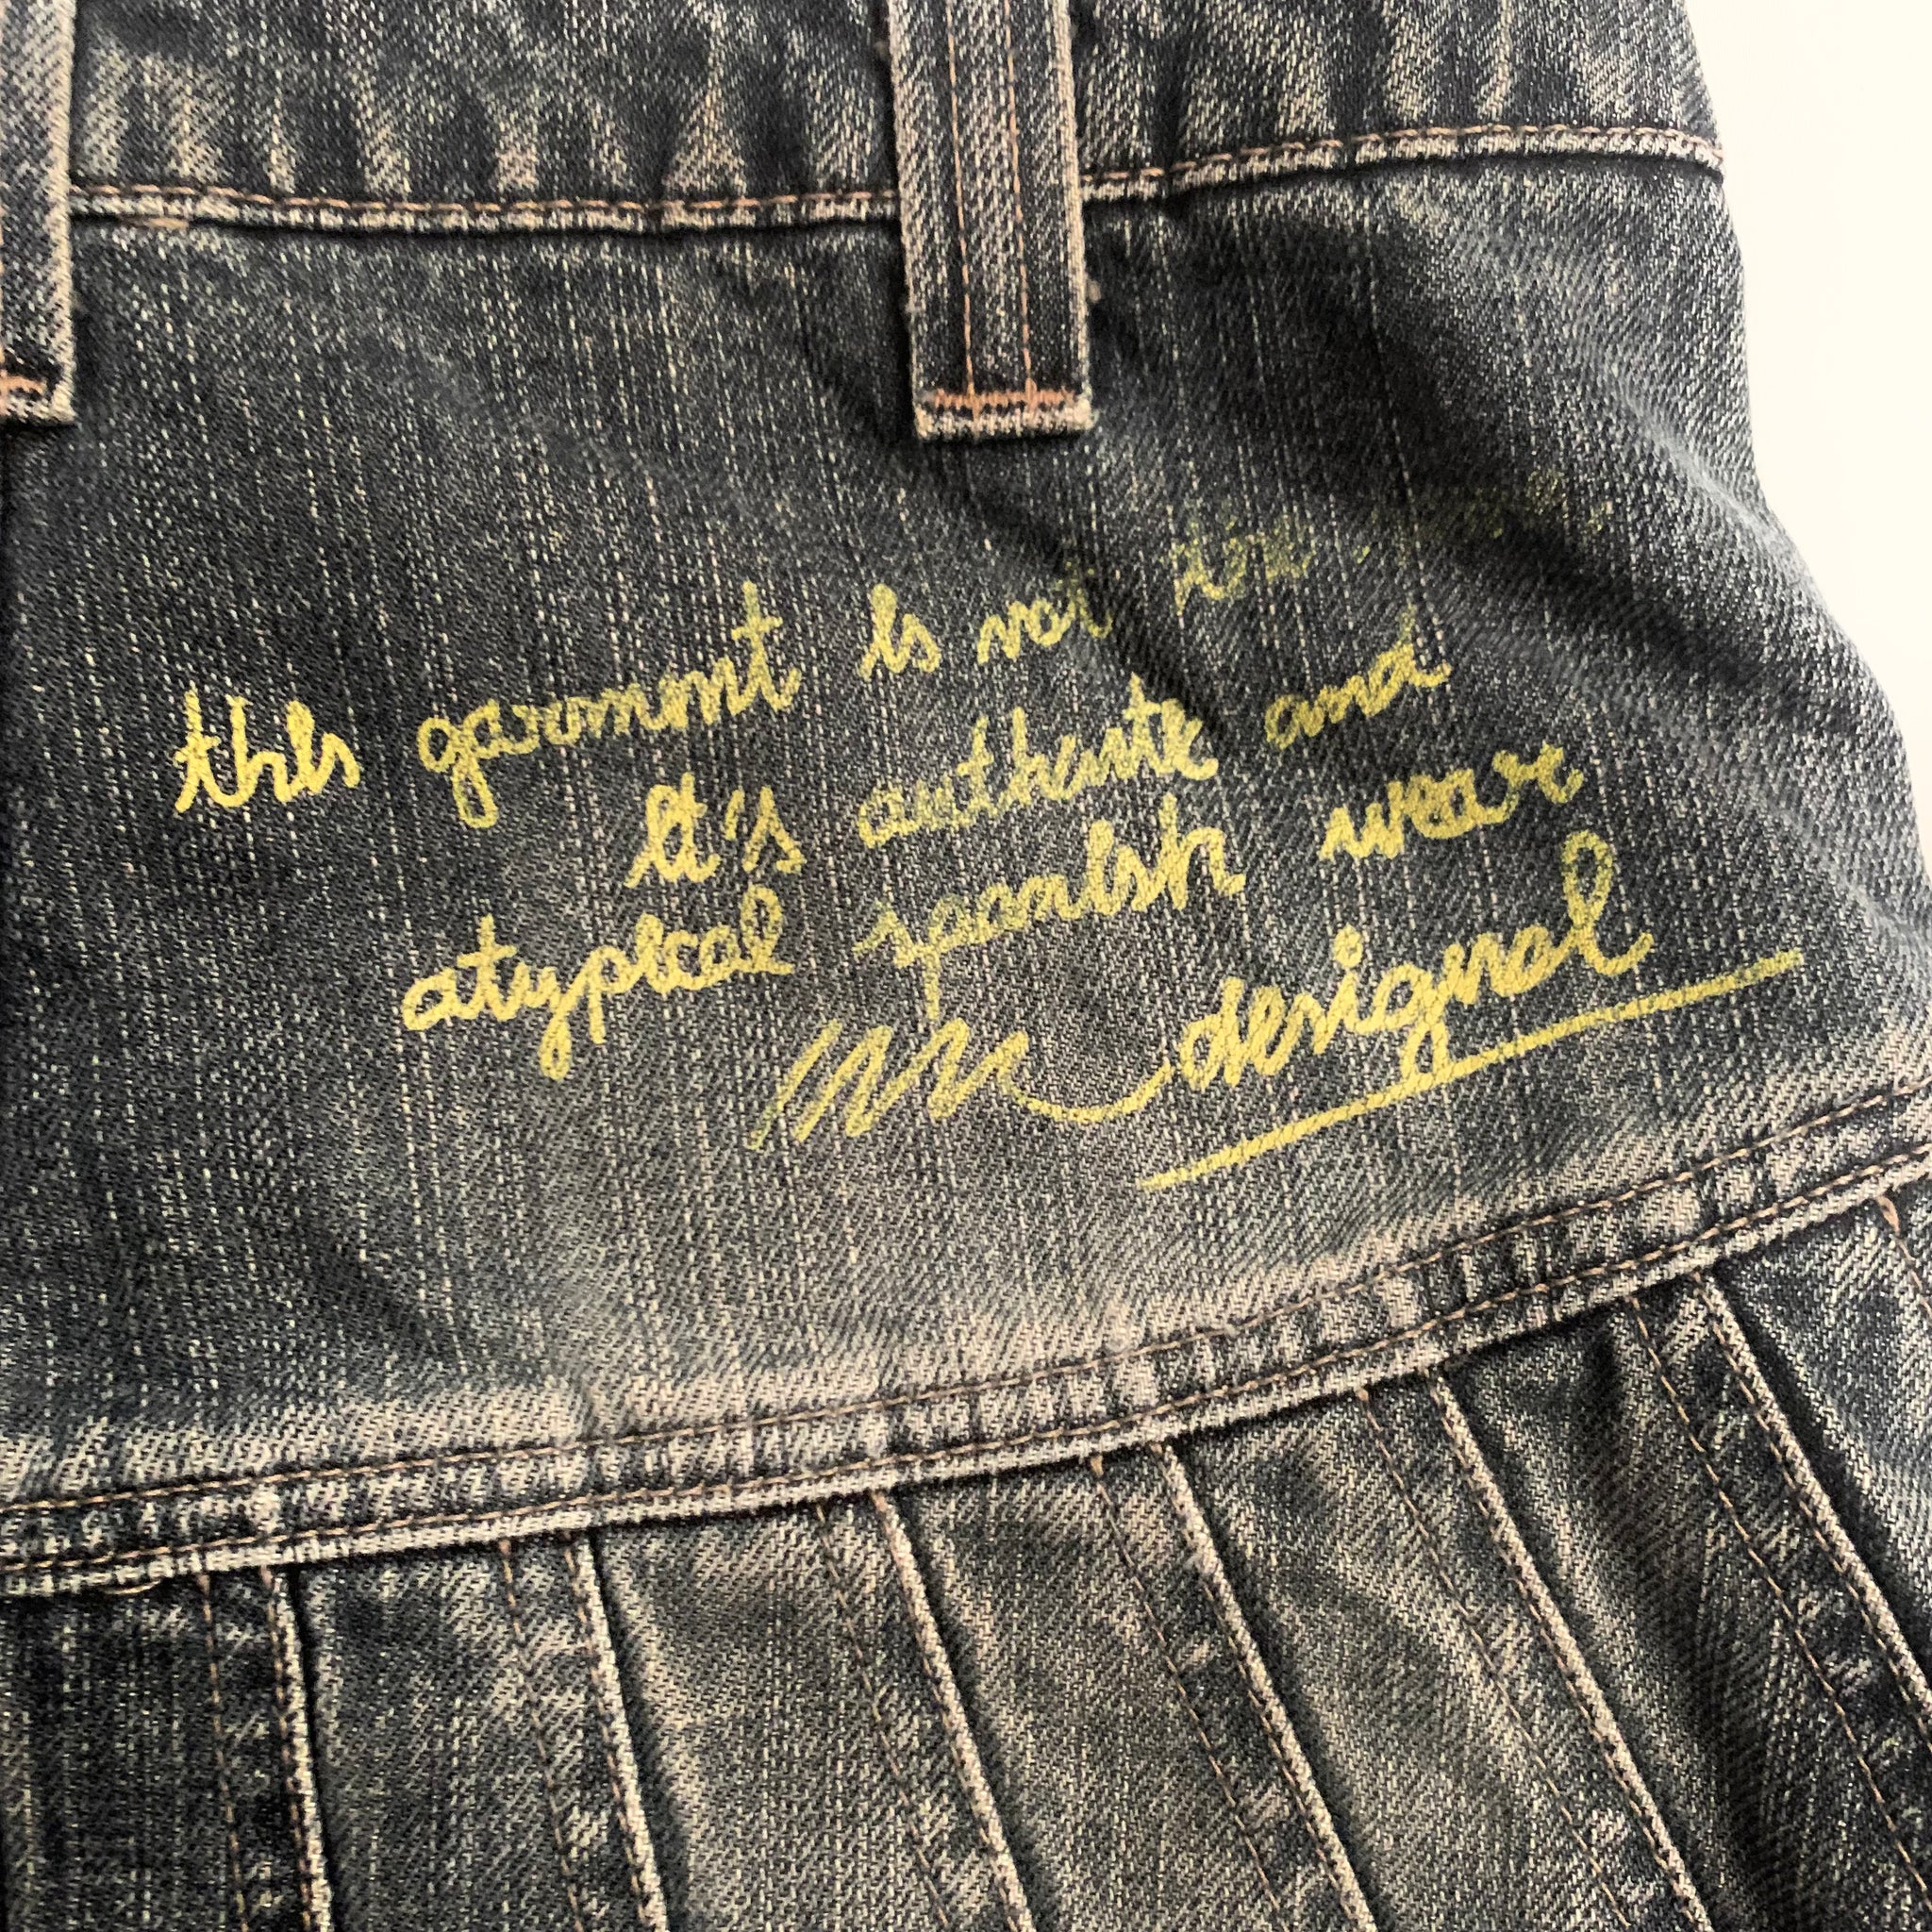 this garmment is not the
It's authinte and
atypical spanish wear
desigual